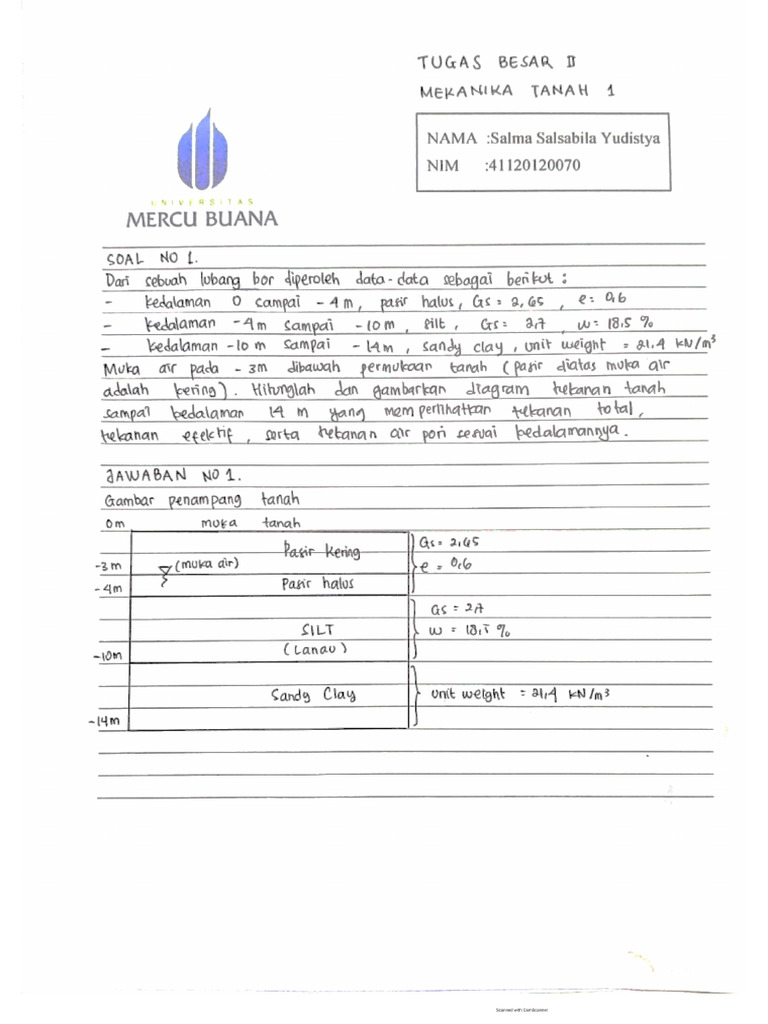 TUGAS BESAR II
MEKANIKA TANAH 1
NAMA :Salma Salsabila Yudistya
NIM :41120120070
UNIVERSITAS
MERCU BUANA
SOAL NO 1.
Dari sebuah lubang bor diperoleh data-data sebagai berikut :
- kedalaman 0 sampai - 4 m, pasir halus, Gs = 2,65 , e = 0,6
- kedalaman -4m sampai -10 m , silt , Gs = 2,7 , w = 18,5 %
- kedalaman -10 m sampai -14m , sandy clay , unit weight = 21,4 kN/m³
Muka air pada - 3m dibawah permukaan tanah ( pasir diatas muka air
adalah kering ) . Hitunglah dan gambarkan diagram tekanan tanah
sampai kedalaman 14 m yang memperlihatkan tekanan total,
tekanan efektif , serta tekanan air pori sesuai kedalamannya.
JAWABAN NO 1.
Gambar penampang tanah
0 m muka tanah
Pasir Kering
Gs = 2,65
-3 m (muka air) e = 0,6
-4 m Pasir halus
Gs = 2,7
SILT w = 18,5 %
-10m (Lanau)
Sandy Clay unit weight = 21,4 kN/m³
-14m
Scanned with CamScanner